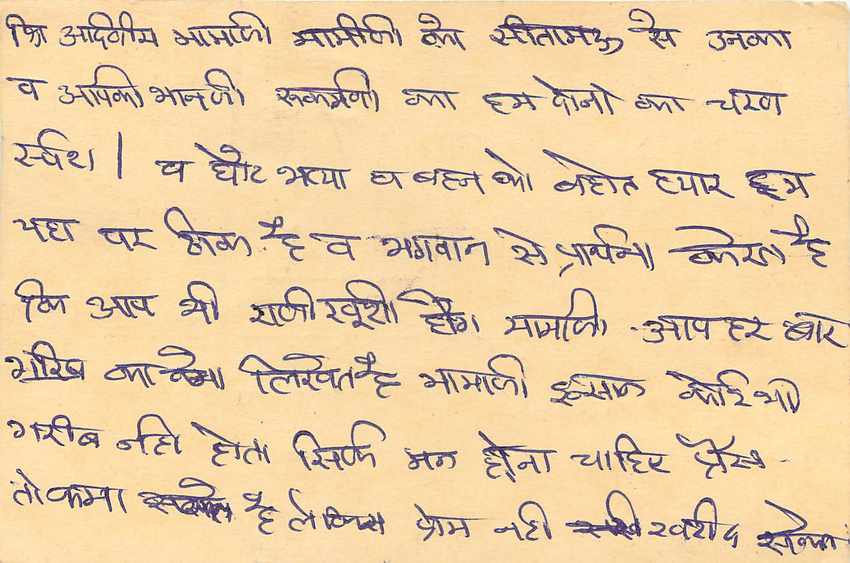 कि आदर्णीय मामाजी मामीजी को सीतामऊ से उनका
व आपकी भानजी रूकमणी का हम दोनो का चरण
र्स्पश। व छोटे भय्या व बहन को बहोत प्यार हम
यहा पर ठिक है व भगवान से प्रार्थना करते है
कि आप भी राजी खूशी होंगे मामाजी आप हर बार
गरिब का लिखते है मामाजी इन्सान कोई भी
गरीब नही होता सिर्फ मन होना चाहिए पैसा
तो कमा सकते है लेकिन प्रेम नही खरीद सकता